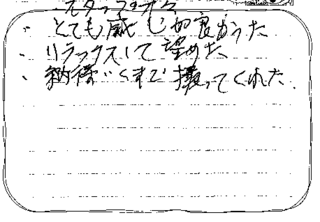 スタッフの方々
・とても感じが良かった
・リラックスして望めた
・納得いくまで撮ってくれた.